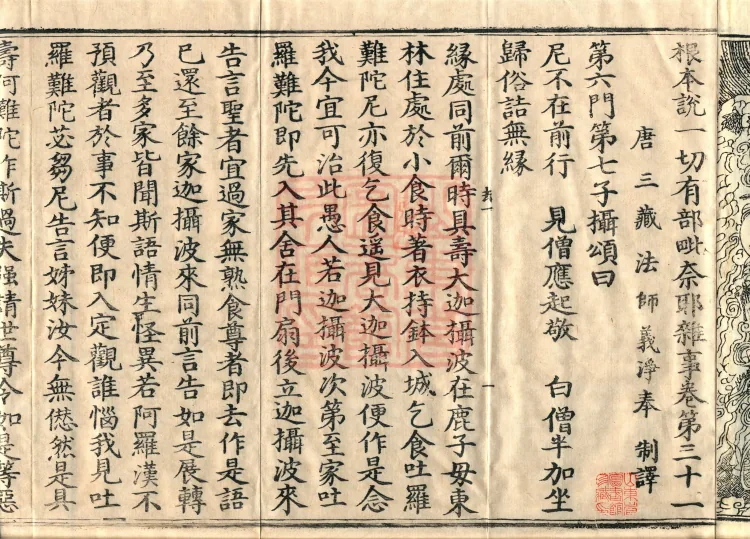 根本說一切有部毗奈耶雜事卷第三十一
唐三藏法師義淨奉 制譯
第六門第七子攝頌曰
尼不在前行 見僧應起敬 白僧半加坐
歸俗詰無緣
緣處同前爾時具壽大迦攝波在鹿子毋東
林住處於小食時著衣持鉢入城乞食吐羅
難陀尼亦復乞食遥見大迦攝波便作是念
我今宜可治此愚人若迦攝波次第至家吐
羅難陀即先入其舍在門扇後立迦攝波來
告言聖者宜過家無熟食尊者即去作是語
已還至餘家迦攝波來同前言告如是展轉
乃至多家皆聞斯語情生怪異若阿羅漢不
預觀者於事不知便即入定觀誰惱我見吐
羅難陀苾芻尼告言姊妹汝今無𠎝然是具
壽阿難陀作斯過失强請世尊令如是等惡